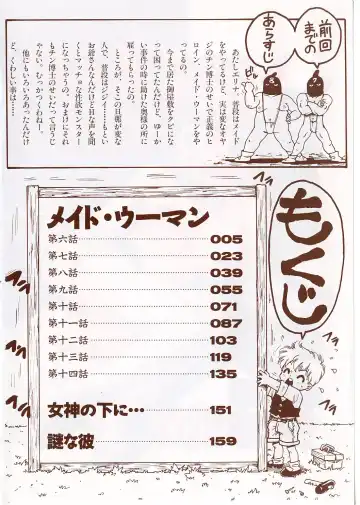 前回
までの
あらすじ
あたしエリナ、普段はメイド
をやってるけど、実は変なオヤ
ジのチン博士のせいで正義のヒ
ロイン、メイド・ウーマンをや
ってるの。
今まで居た御屋敷をクビにな
って困ってたんだけど、ゆーか
い事件の時に助けた奥様の所に
雇ってもらったの。
ところが、そこの旦那が変な
人で、普段はジジイ……もとい
お爺さんなんだけどHな声を聞
くとマッチョな性欲モンスター
になっちゃうの。おまけにそれ
もチン博士のせいだって言うじ
ゃない。むっかつくわねー。
他にもいろいろあったんだけ
ど、くわしい事は……
もくじ
メイド・ウーマン
第六話 005
第七話 023
第八話 039
第九話 055
第十話 071
第十一話 087
第十二話 103
第十三話 119
第十四話 135
女神の下に… 151
謎な彼 159